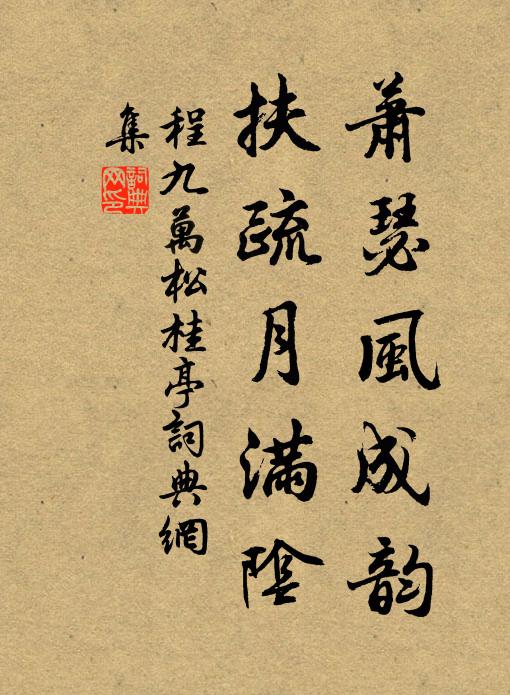 蕭瑟風成韵
扶疏月滿陰
程九萬松桂亭詞典網
集
詞典网印